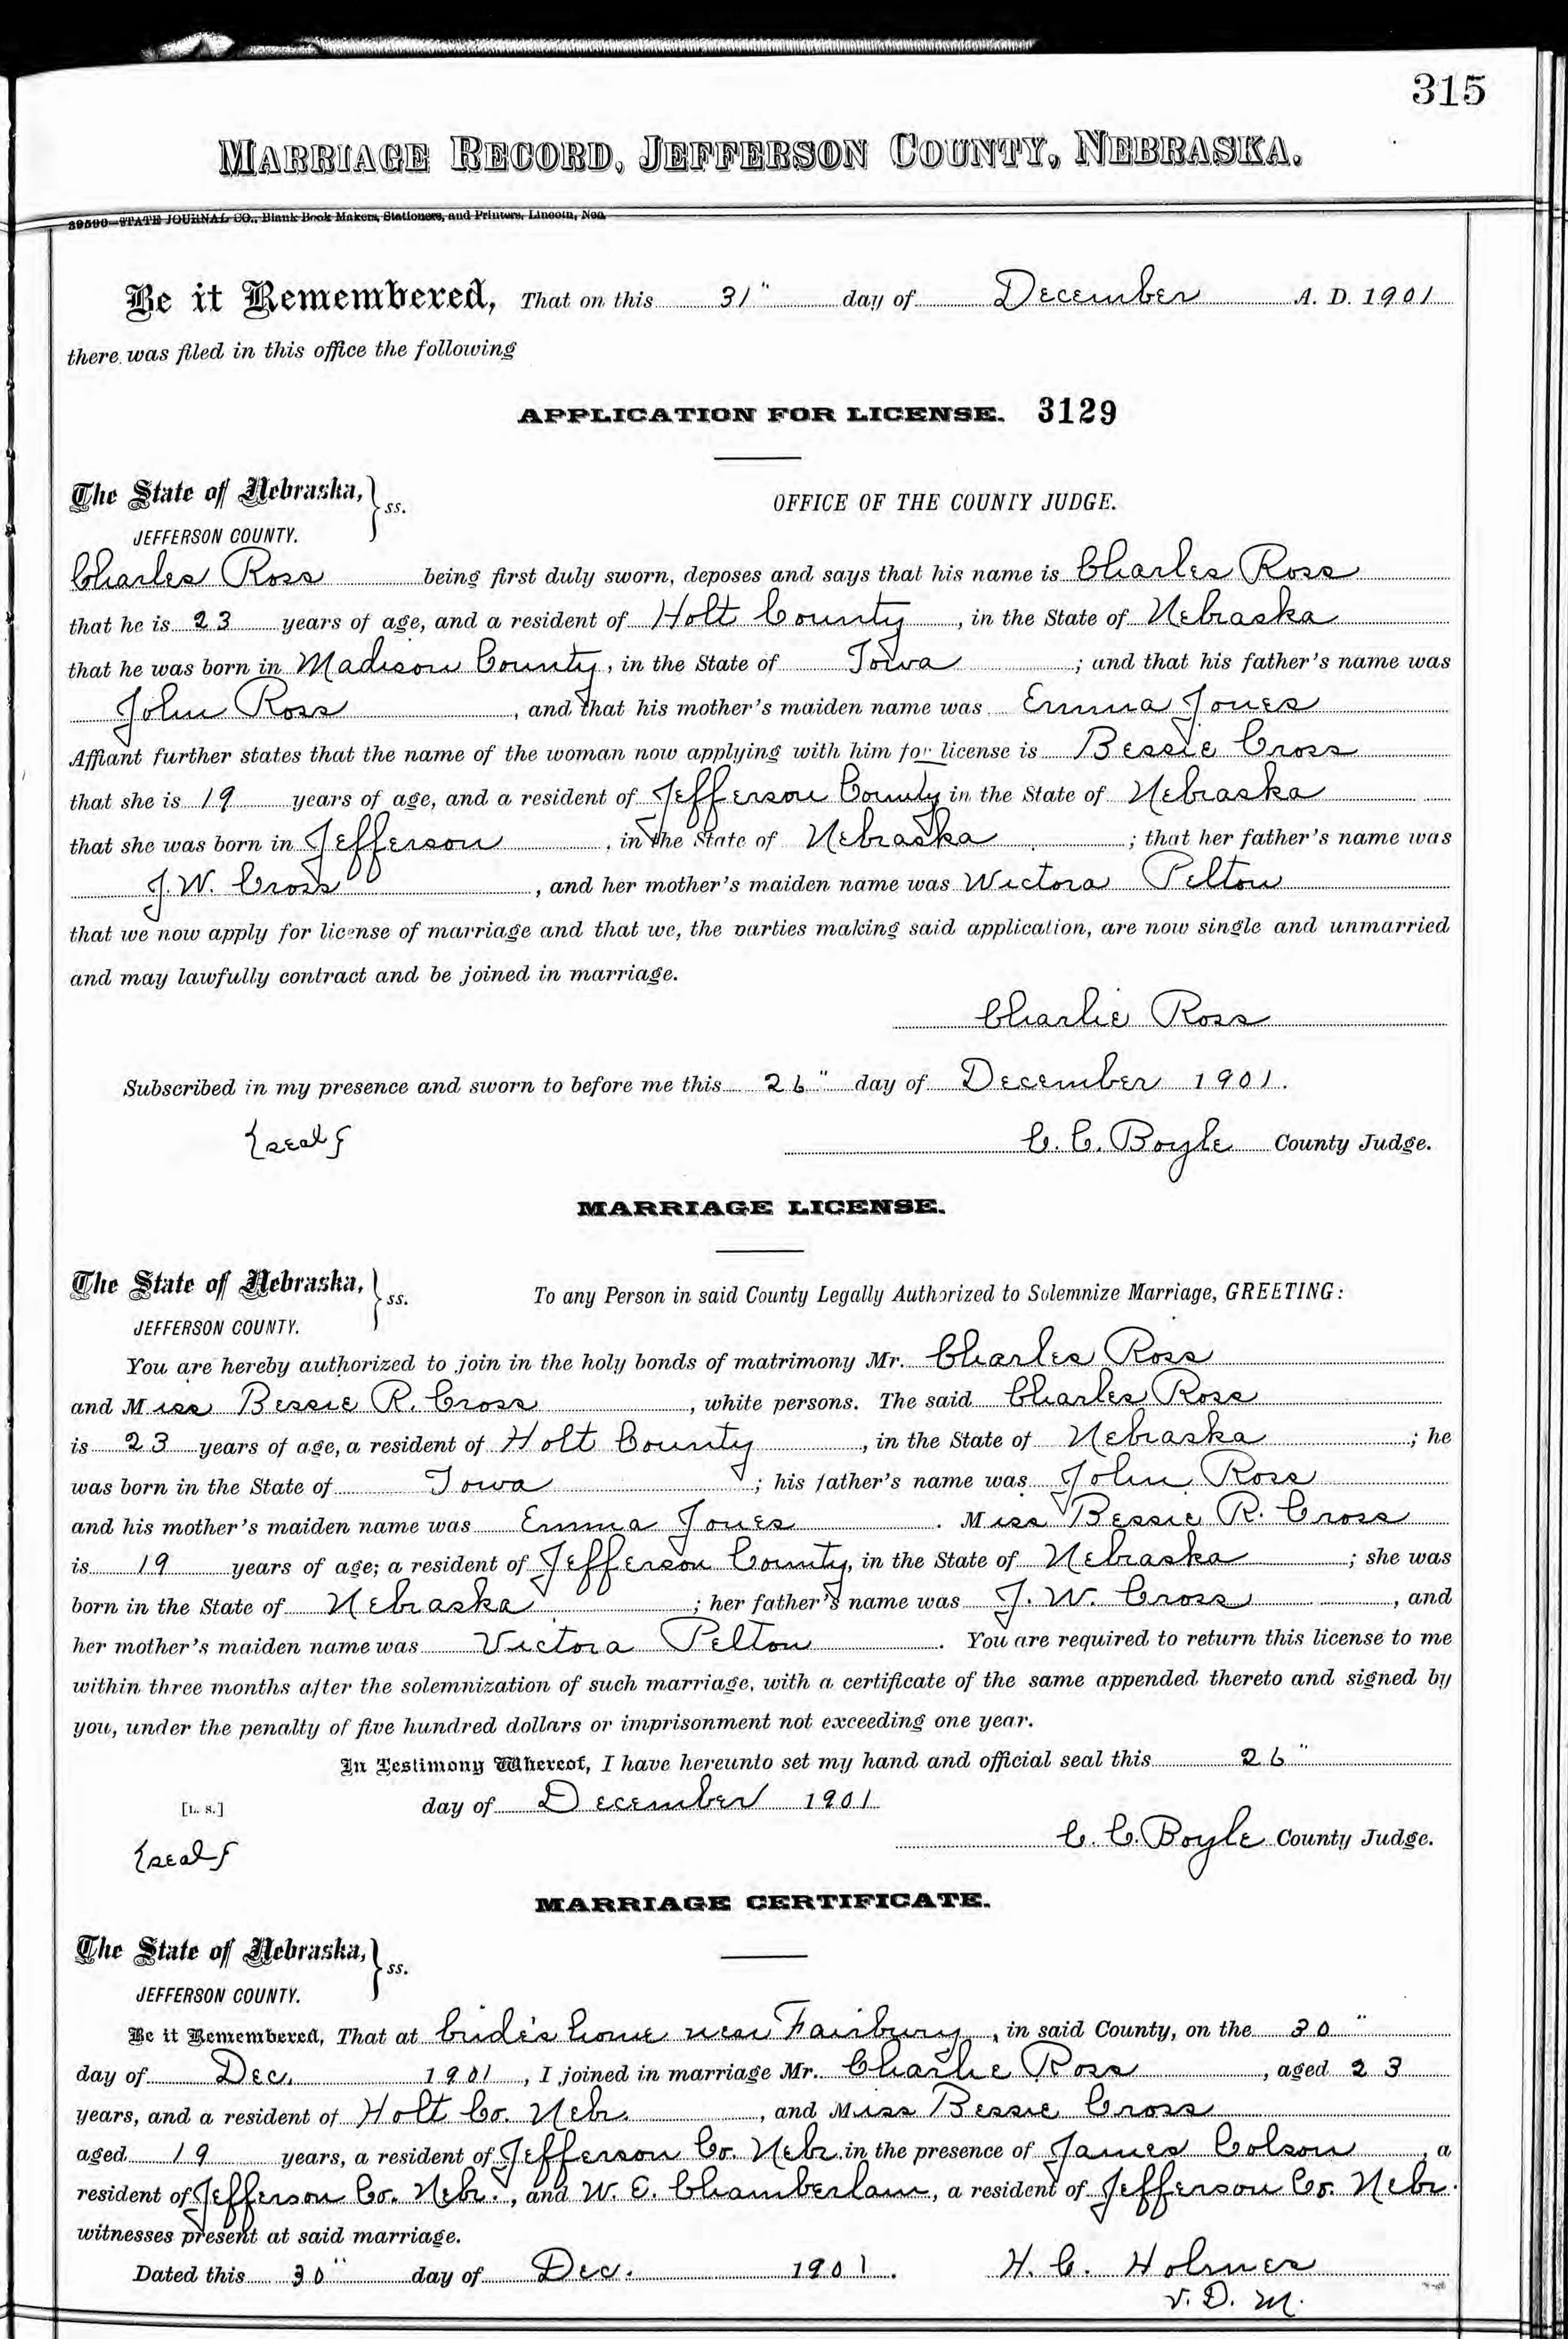 315
MARRIAGE RECORD, JEFFERSON COUNTY, NEBRASKA.
39590—STATE JOURNAL CO., Blank Book Makers, Stationers, and Printers, Lincoln, Neb.
Be it Remembered, That on this 31" day of December A. D. 1901
there was filed in this office the following
APPLICATION FOR LICENSE. 3129
The State of Nebraska, } ss.
OFFICE OF THE COUNTY JUDGE.
JEFFERSON COUNTY.
Charles Ross being first duly sworn, deposes and says that his name is Charles Ross
that he is 23 years of age, and a resident of Holt County, in the State of Nebraska
that he was born in Madison County, in the State of Iowa; and that his father's name was
John Ross, and that his mother's maiden name was Emma Jones
Affiant further states that the name of the woman now applying with him for license is Bessie Cross
that she is 19 years of age, and a resident of Jefferson County in the State of Nebraska
that she was born in Jefferson, in the State of Nebraska; that her father's name was
J. W. Cross, and her mother's maiden name was Wictora Pelton
that we now apply for license of marriage and that we, the parties making said application, are now single and unmarried
and may lawfully contract and be joined in marriage.
Charlie Ross
Subscribed in my presence and sworn to before me this 26" day of December 1901.
{seal}
C. C. Boyle County Judge.
MARRIAGE LICENSE.
The State of Nebraska, } ss.
To any Person in said County Legally Authorized to Solemnize Marriage, GREETING:
JEFFERSON COUNTY.
You are hereby authorized to join in the holy bonds of matrimony Mr. Charles Ross
and Miss Bessie R. Cross, white persons. The said Charles Ross
is 23 years of age, a resident of Holt County, in the State of Nebraska; he
was born in the State of Iowa; his father's name was John Ross
and his mother's maiden name was Emma Jones. Miss Bessie R. Cross
is 19 years of age; a resident of Jefferson County, in the State of Nebraska; she was
born in the State of Nebraska; her father's name was J. W. Cross, and
her mother's maiden name was Victora Pelton. You are required to return this license to me
within three months after the solemnization of such marriage, with a certificate of the same appended thereto and signed by
you, under the penalty of five hundred dollars or imprisonment not exceeding one year.
In Testimony Whereof, I have hereunto set my hand and official seal this 26"
[L. S.] day of December 1901
C. C. Boyle County Judge.
{seal}
MARRIAGE CERTIFICATE.
The State of Nebraska, } ss.
JEFFERSON COUNTY.
Be it Remembered, That at bride's home near Fairbury, in said County, on the 30"
day of Dec. 1901, I joined in marriage Mr. Charlie Ross, aged 23
years, and a resident of Holt Co. Nebr., and Miss Bessie Cross
aged 19 years, a resident of Jefferson Co. Nebr. in the presence of James Colson, a
resident of Jefferson Co. Nebr., and W. E. Chamberlain, a resident of Jefferson Co. Nebr.
witnesses present at said marriage.
Dated this 30" day of Dec. 1901. H. C. Holmes
V. D. M.